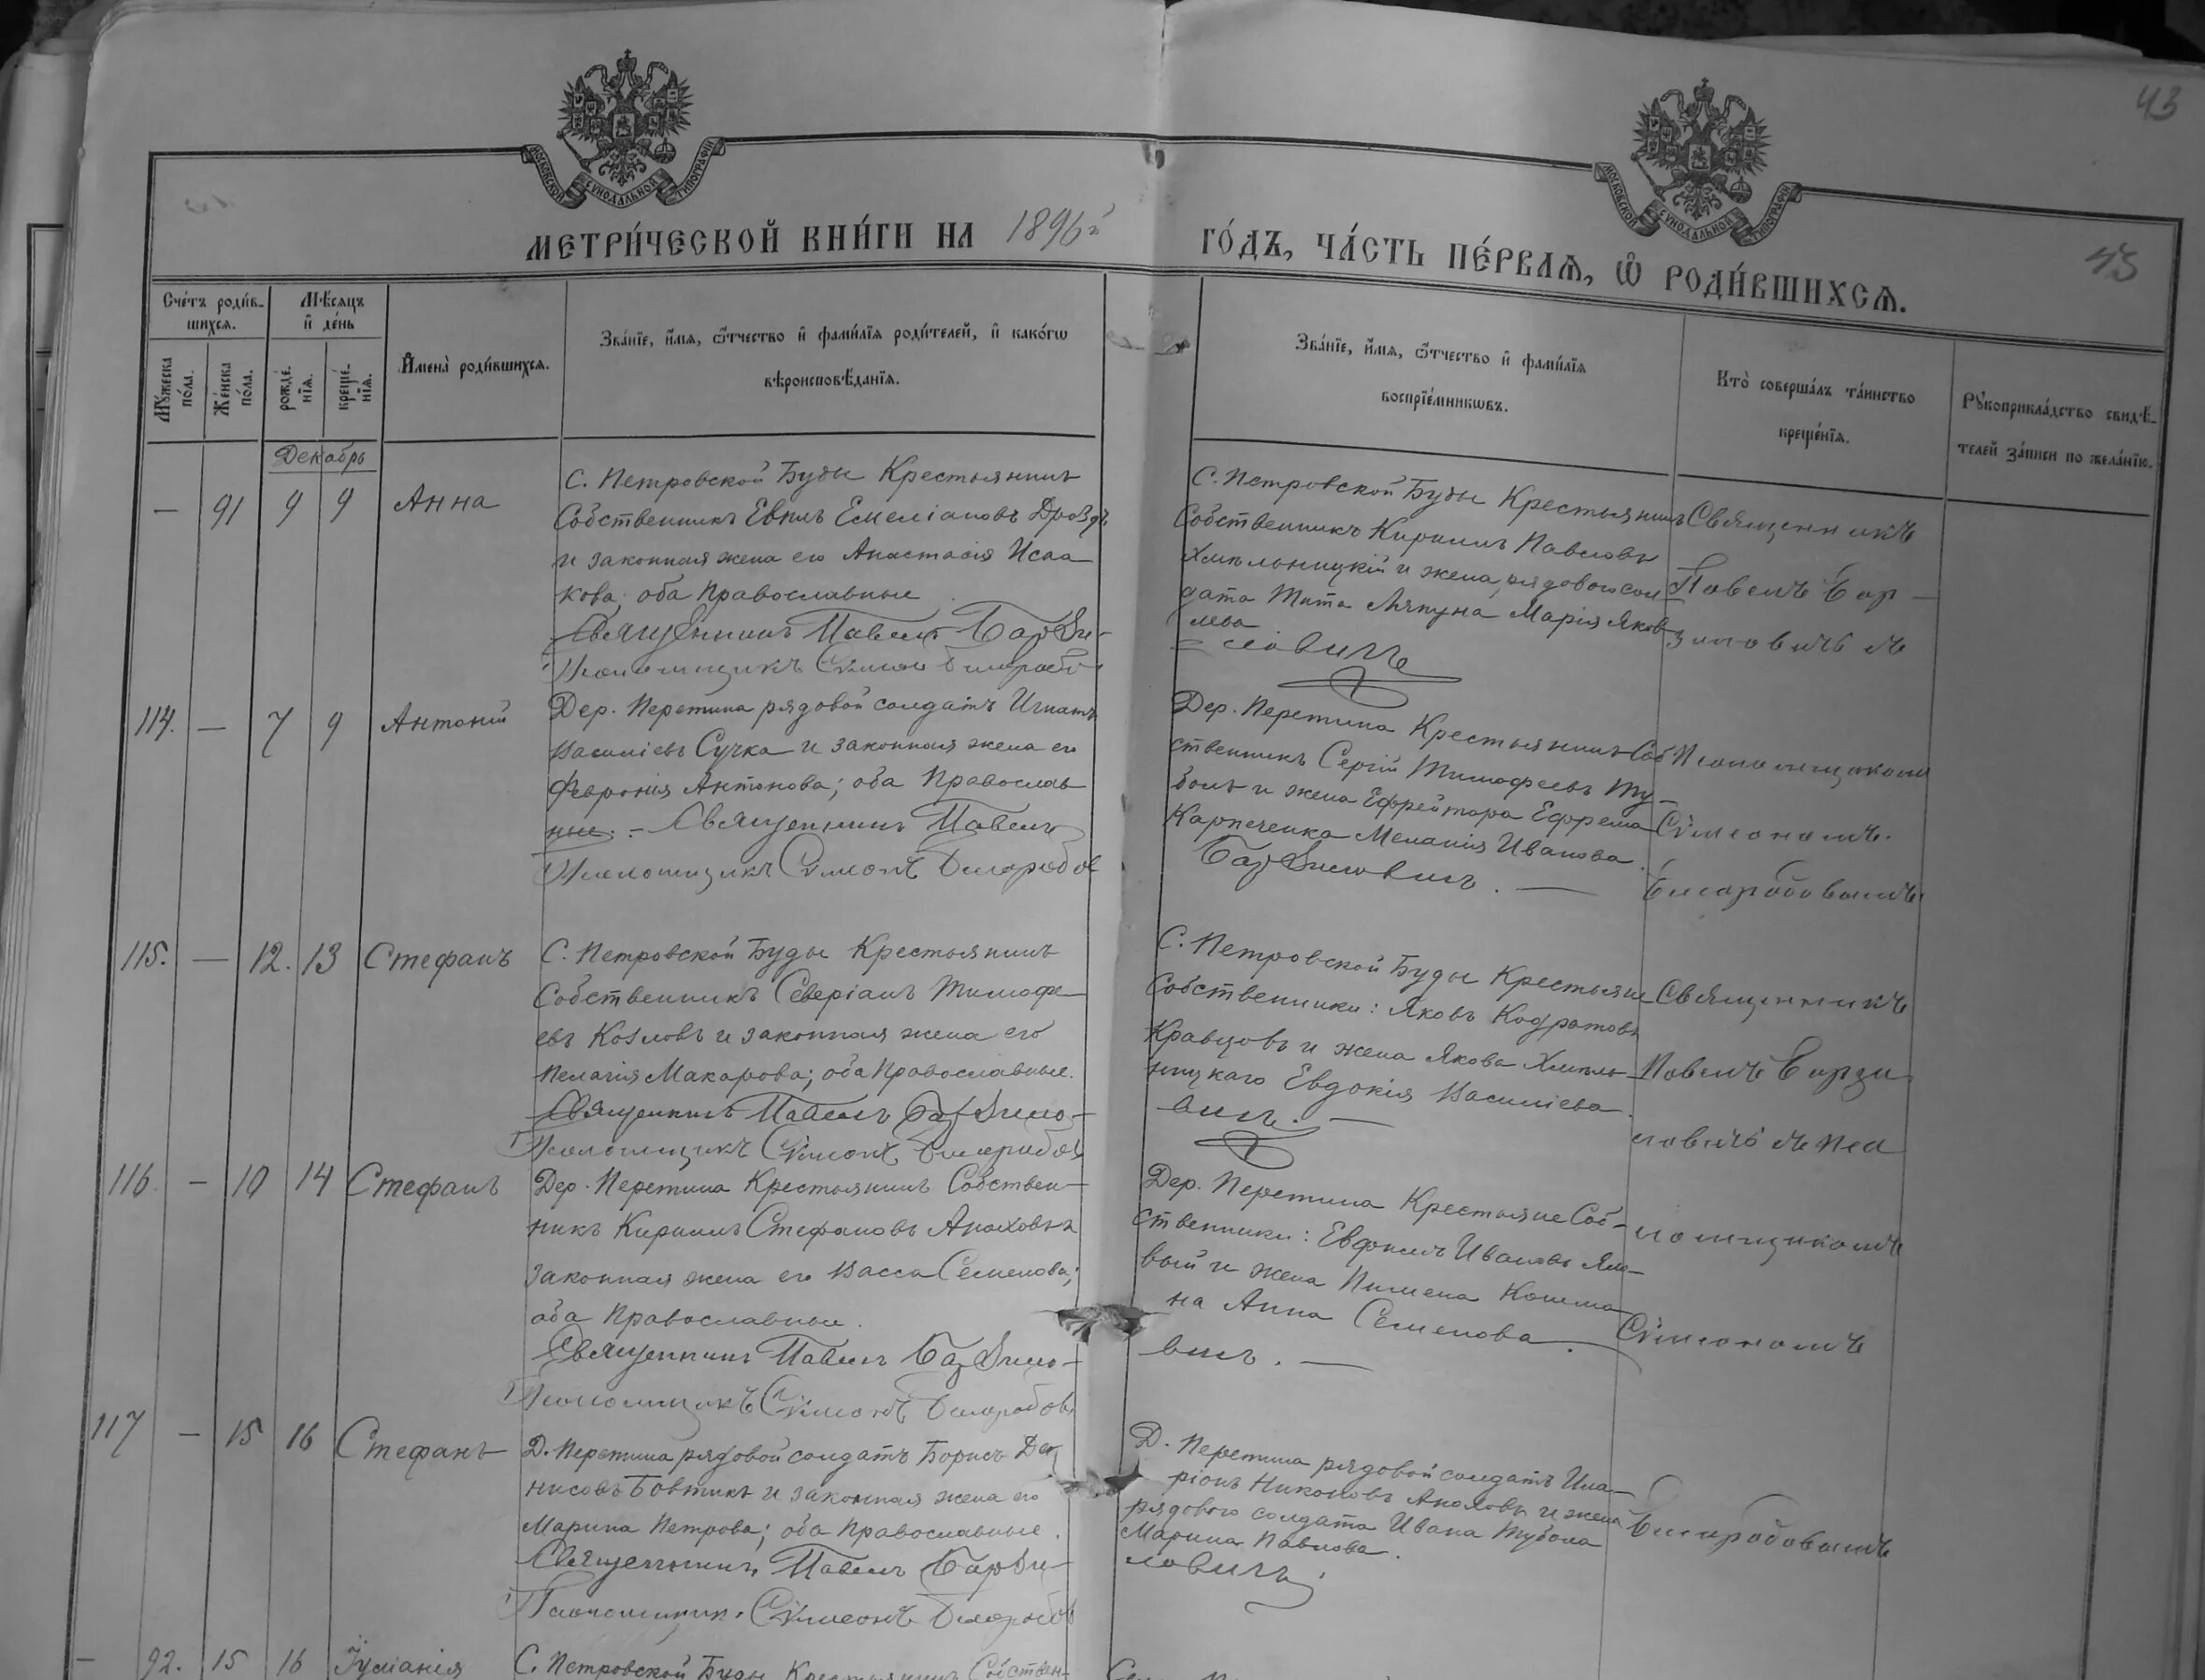 43
МОСКОВСКОЙ СѴНОДАЛЬНОЙ ТИПОГРАФІИ
МОСКОВСКОЙ СѴНОДАЛЬНОЙ ТИПОГРАФІИ
МЕТРИ́ЧЕСКОЙ КНИ́ГИ НА 1896й ГО́ДЪ, ЧА́СТЬ ПЕ́РВАѦ, Ѡ҆ РОДИ́ВШИХСѦ.
43
Сче́тъ роди́в-
шихсѧ.
Мѣ́сѧцъ
и҆ де́нь
Мꙋ́жеска
по́ла.
Же́нска
по́ла.
рожде́-
нїѧ.
креще́-
нїѧ.
И҆мена̀ роди́вшихсѧ.
Зва́нїе, и҆́мѧ, ѻ҆́тчество и҆ фами́лїѧ роди́телей, и҆ како́гѡ
вѣроисповѣ́данїѧ.
Зва́нїе, и҆́мѧ, ѻ҆́тчество и҆ фами́лїѧ
воспрїе́мникѡвъ.
Кто̀ соверша́лъ та́инство
креще́нїѧ.
Рꙋкоприкла́дство свидѣ́-
телей за́писи по жела́нїю.
Декабрь
— 91 9 9 Анна
С. Петровской Буды Крестьянинъ
Собственникъ Евѳим Емеліановъ Дроздъ
и законная жена его Анастасія Исаа
кова; оба Православные
Священникъ Павелъ Барзи-
Псаломщикъ Сѵмеонъ
С. Петровской Буды Крестьянинъ
Собственникъ Кириллъ Павловъ
Хмѣльницкій и жена рядового сол
дата Тита Ляпуна Марія Яков
лева
= ловичъ
Священникъ
Павелъ Бар-
зиловичъ съ
114. — 7 9 Антоній
Дер. Перетина рядовой солдатъ Игнатъ
Василіевъ Сучка и законная жена его
Феврония Антонова; оба Православ
ные. — Священникъ Павелъ
Псаломщикъ Сѵмеонъ
Дер. Перетина Крестьянинъ Соб
ственникъ Сергій Тимофеевъ Ту-
болъ и жена Ефрейтора Ефрема
Карпеченка Меланія Иванова.
Барзиловичъ. —
Псаломщикомъ
Сѵмеономъ.
115. — 12. 13 Стефанъ
С. Петровской Буды Крестьянинъ
Собственникъ Северіанъ Тимофе-
евъ Козловъ и законная жена его
Пелагія Макарова; оба Православные.
Священникъ Павелъ Барзило-
Псаломщикъ Сѵмеонъ
С. Петровской Буды Крестьяне
Собственники: Яковъ Кодратовъ
Кравцовъ и жена Якова Хмѣль-
ницкаго Евдокія Василіева.
вичъ. —
Священникъ
Павелъ Барзи
ловичъ съ Пса
116. — 10 14 Стефанъ
Дер. Перетина Крестьянинъ Собствен-
никъ Кириллъ Стефановъ Анаховъ и
законная жена его Васса Семенова;
оба Православные.
Священникъ Павелъ Барзило-
Псаломщикъ Сѵмеонъ
Дер. Перетина Крестьяне Соб-
ственники: Евфимъ Ивановъ Яло-
вый и жена Пимена Кошма
на Анна Семенова.
вичъ. —
ломщикомъ
Сѵмеономъ
117 — 15 16 Стефанъ
Д. Перетина рядовой солдатъ Борисъ Де-
нисовъ Бовтикъ и законная жена его
Марина Петрова; оба Православные.
Священникъ Павелъ Барзи-
Псаломщикъ Сѵмеонъ
Д. Перетина рядовой солдатъ Ила-
ріонъ Никоновъ Анаховъ и жена
рядового солдата Ивана Тубола
Марина Павлова.
ловичъ
— 92. 15 16 Іуліанія
С. Петровской Буды Крестьянинъ Собствен-